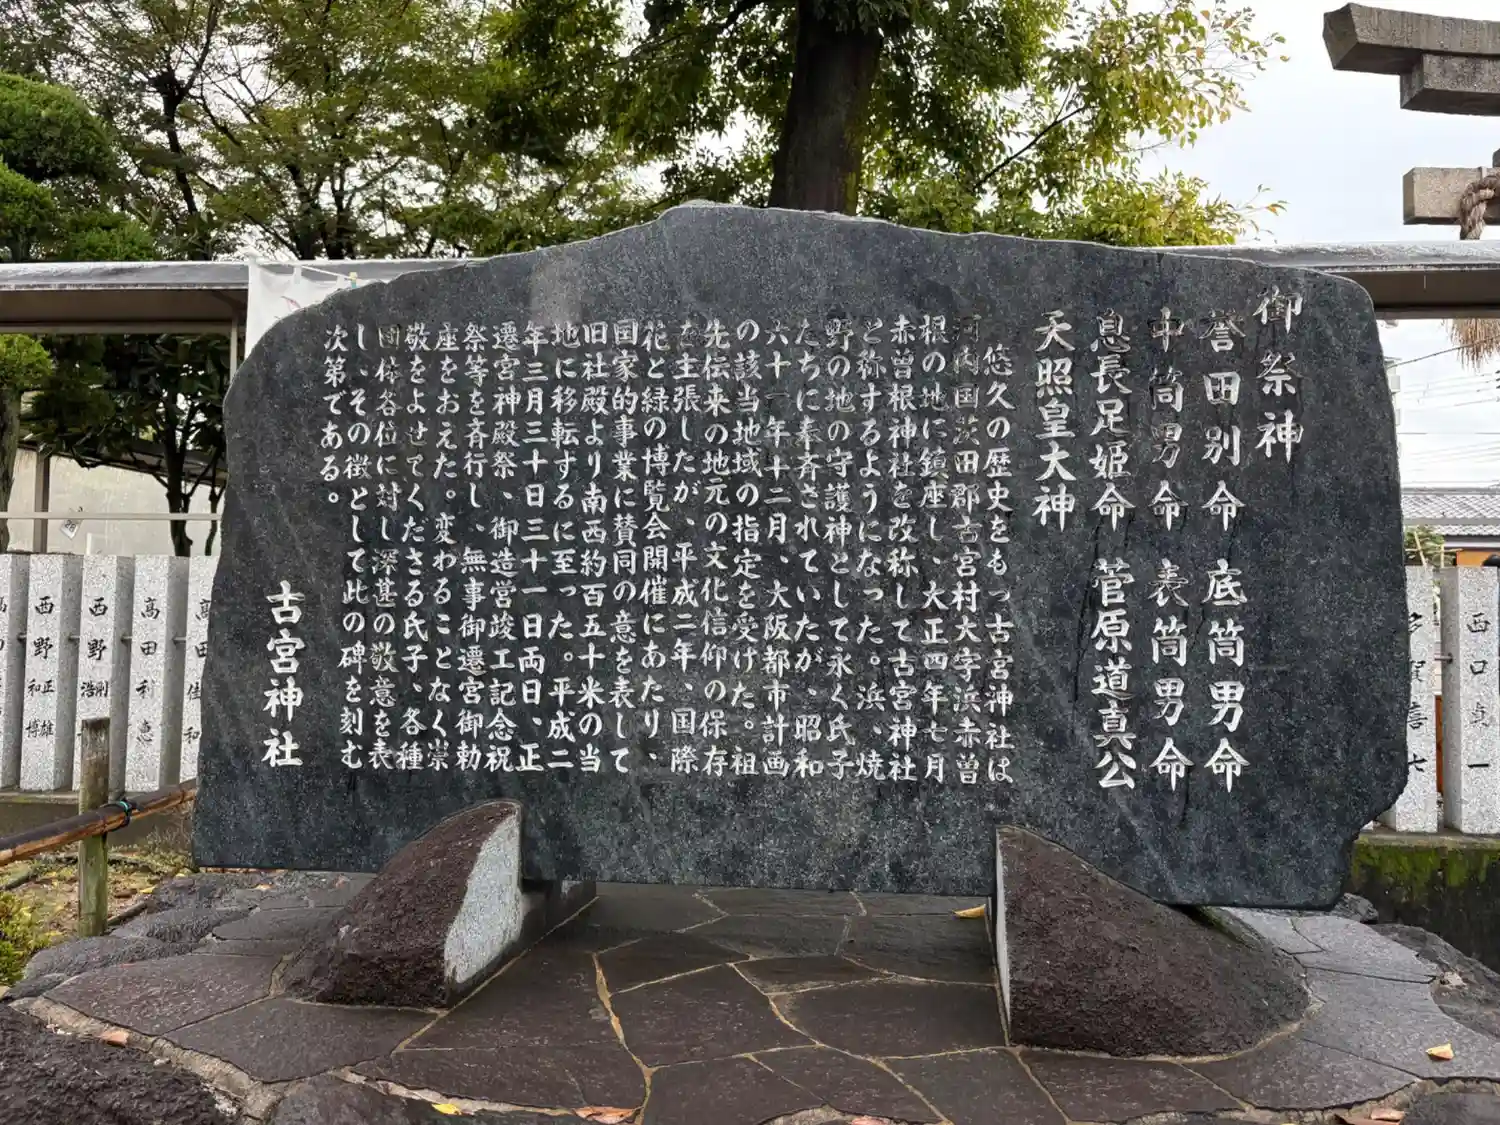 御祭神
誉田別命　底筒男命
中筒男命　表筒男命
息長足姫命　菅原道真公
天照皇大神
悠久の歴史をもつ古宮神社は
河内国茨田郡古宮村大字浜赤曽
根の地に鎮座し、大正四年七月
赤曽根神社を改称して古宮神社
と称するようになった。浜、焼
野の地の守護神として永く氏子
たちに奉斉されていたが、昭和
六十一年十二月、大阪都市計画
の該当地域の指定を受けた。祖
先伝来の地元の文化信仰の保存
を主張したが、平成二年、国際
花と緑の博覧会開催にあたり、
国家的事業に賛同の意を表して
旧社殿より南西約百五十米の当
地に移転するに至った。平成二
年三月三十日三十一日両日、正
遷宮神殿祭、御造営竣工記念祝
祭等を斉行し、無事御遷宮御勅
座をおえた。変わることなく崇
敬をよせてくださる氏子、各種
団体各位に対し深甚の敬意を表
し、その徴として此の碑を刻む
次第である。
古宮神社
西野和博
西野浩
高田利恵
高田佳和
西口貞一